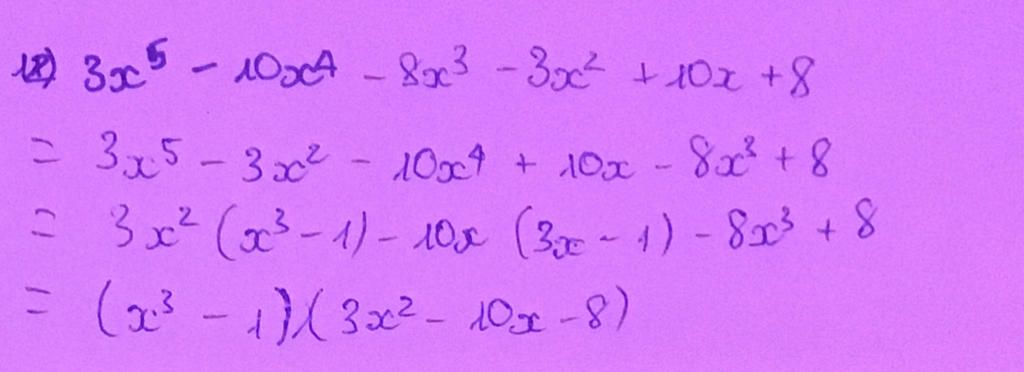 12) 3x⁵ - 10x⁴ - 8x³ - 3x² + 10x + 8
= 3x⁵ - 3x² - 10x⁴ + 10x - 8x³ + 8
= 3x² (x³ - 1) - 10x (3x - 1) - 8x³ + 8
= (x³ - 1)(3x² - 10x - 8)